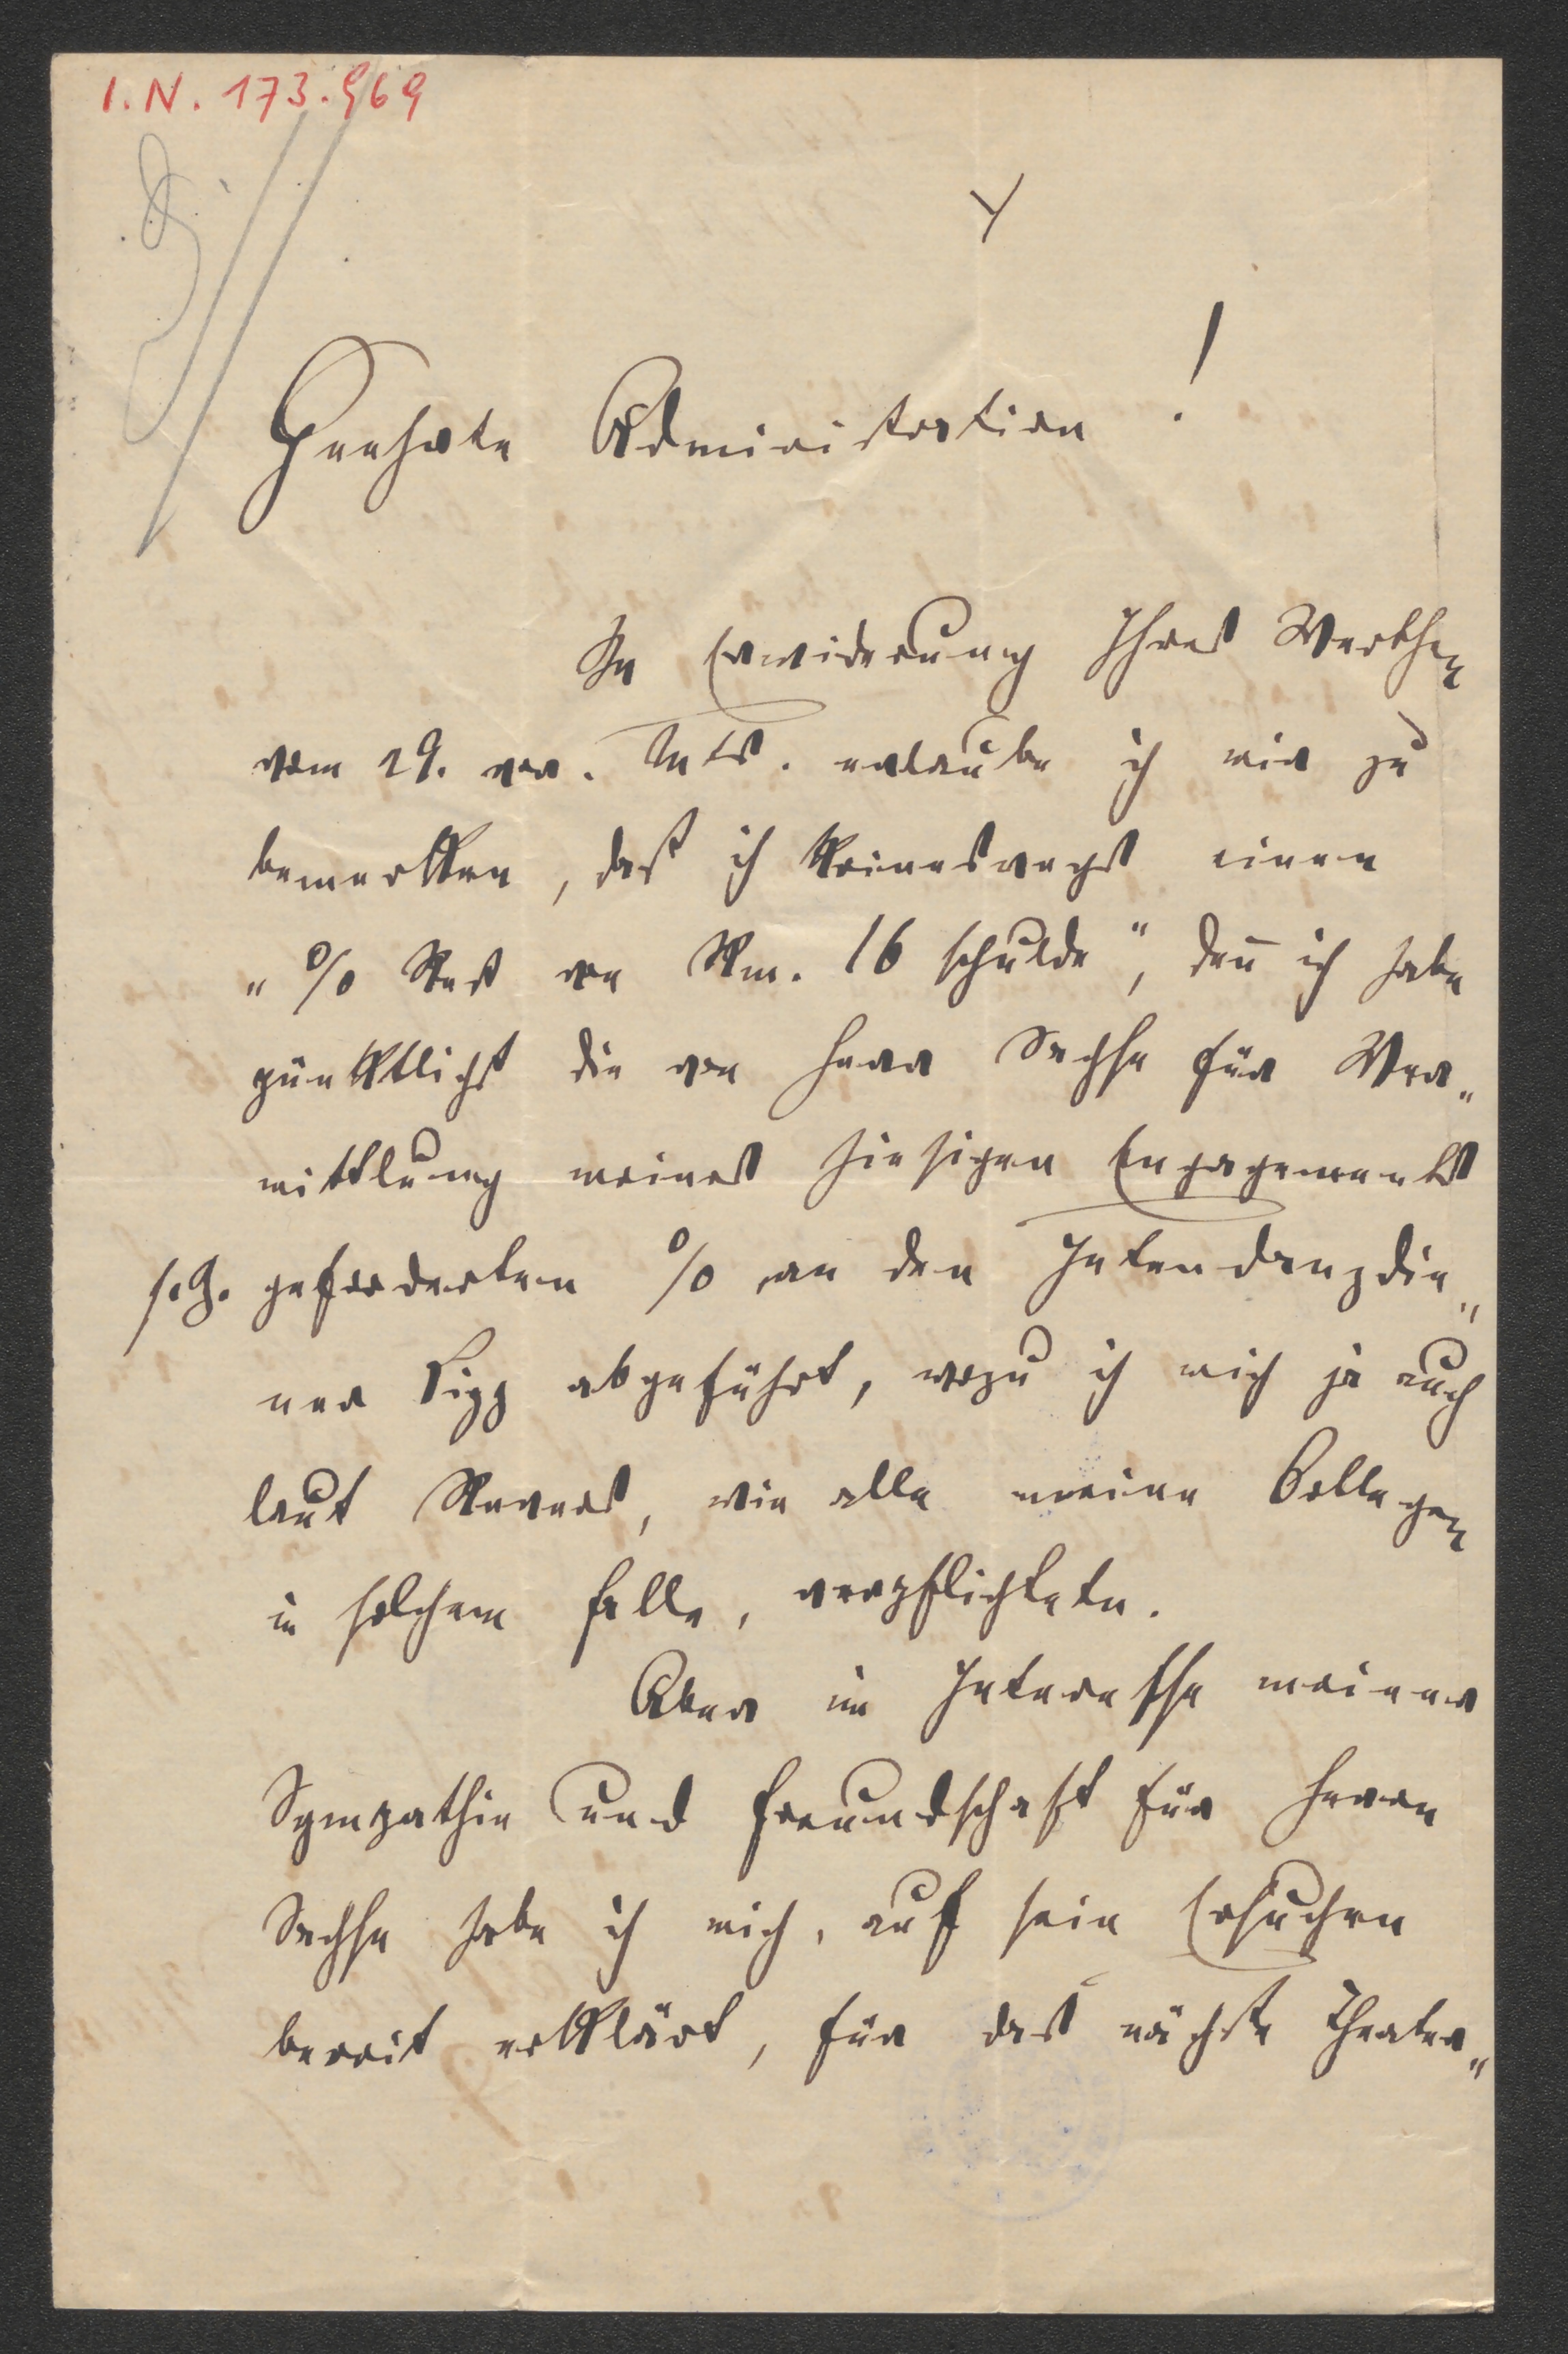 I.N. 173.969
Geehrte Administration!
In Erwiderung Ihres Werthen
vom 29. vor. Mts. erlaube ich mir zu
bemerken, daß ich keineswegs einen
„% Rest von Rm. 16 schulde“, deñ ich habe
pünktlichst die von Herrn Sachse für Ver„
mittlung meines hiesigen Engagements
s.Z. geforderten % an den Intendanzdie„
ner Sigg abgeführt, wozu ich mich ja auch
laut Revers, wie alle meine Collegen
in solchem Falle, verpflichtete.
Aber im Interesse meiner
Sympathie und Freundschaft für Herrn
Sachse habe ich mich, auf sein Ersuchen
bereit erklärt, für das nächste Theater„